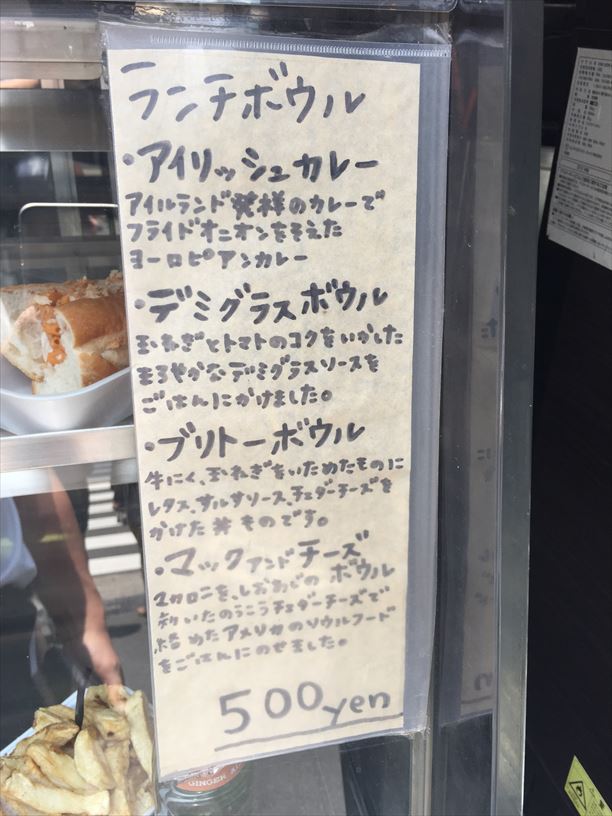 ランチボウル
・アイリッシュカレー
アイルランド発祥のカレーで
フライドオニオンをそえた
ヨーロピアンカレー
・デミグラスボウル
玉ねぎとトマトのコクをいかした
まろやかなデミグラスソースを
ごはんにかけました。
・ブリトーボウル
牛にく、玉ねぎをいためたものに
レタス、サルサソース、チェダーチーズを
かけた丼ものです。
・マックアンドチーズ
ボウル
マカロニを、しおあじの
効いたのうこうチェダーチーズで
絡めたアメリカのソウルフード
をごはんにのせました。
500yen
GINGER